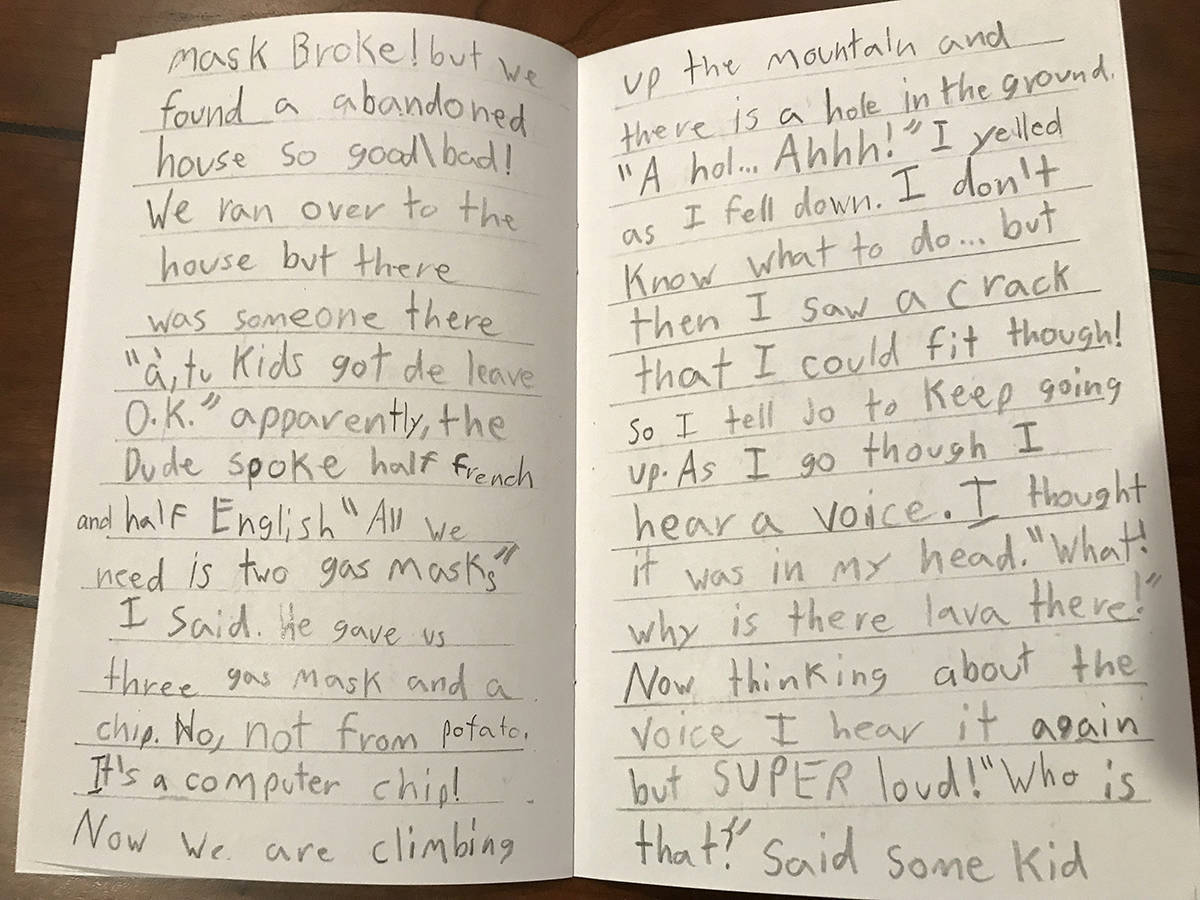 mask Broke! but we
found a abandoned
house so good\bad!
We ran over to the
house but there
was someone there
"à, tu Kids got de leave
O.K." apparently, the
Dude spoke half french
and half English "All we
need is two gas masks"
I Said. He gave us
three gas mask and a
chip. No, not from potato.
It's a computer chip!
Now we are climbing
up the mountain and
there is a hole in the ground.
"A hol... Ahhh!" I yelled
as I fell down. I don't
Know what to do... but
then I saw a crack
that I could fit though!
So I tell Jo to Keep going
up. As I go though I
hear a voice. I thought
it was in my head. "What!
why is there lava there!"
Now thinking about the
voice I hear it again
but SUPER loud! "Who is
that?" Said some kid